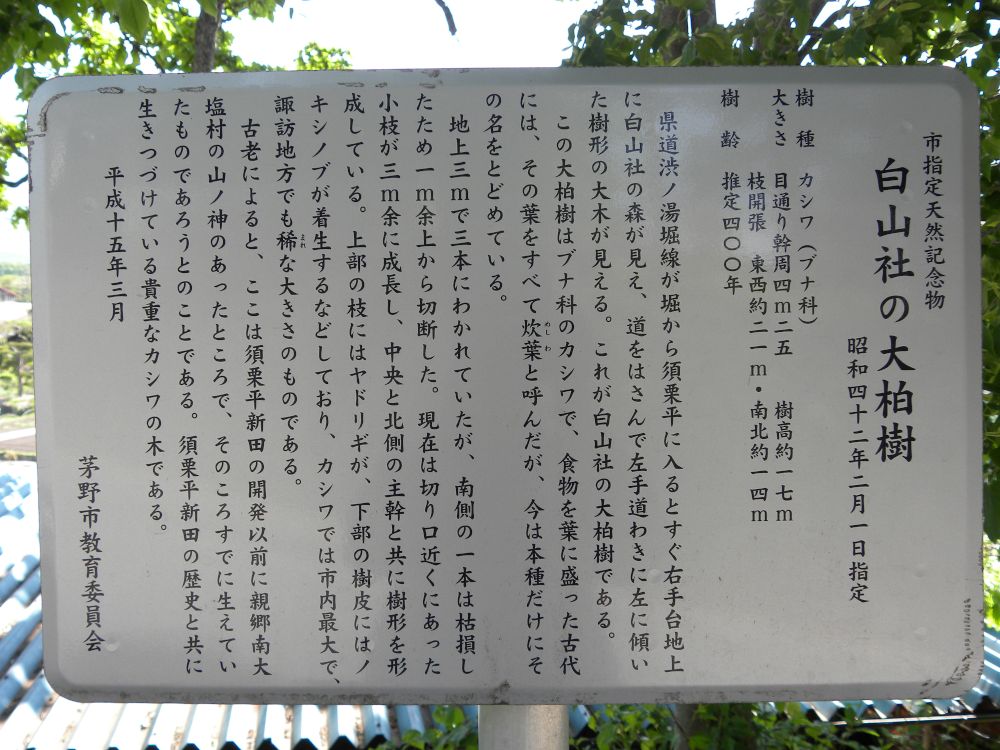 市指定天然記念物
白山社の大柏樹
昭和四十二年二月一日指定
樹　種　カシワ（ブナ科）
大きさ　目通り幹周四ｍ二五　樹高約一七ｍ
枝開張　東西約二一ｍ・南北約一四ｍ
樹　齢　推定四〇〇年
県道渋ノ湯堀線が堀から須栗平に入るとすぐ右手台地上
に白山社の森が見え、道をはさんで左手道わきに左に傾い
た樹形の大木が見える。これが白山社の大柏樹である。
この大柏樹はブナ科のカシワで、食物を葉に盛った古代
には、その葉をすべて炊葉と呼んだが、今は本種だけにそ
の名をとどめている。
地上三ｍで三本にわかれていたが、南側の一本は枯損し
たため一ｍ余上から切断した。現在は切り口近くにあった
小枝が三ｍ余に成長し、中央と北側の主幹と共に樹形を形
成している。上部の枝にはヤドリギが、下部の樹皮にはノ
キシノブが着生するなどしており、カシワでは市内最大で、
諏訪地方でも稀な大きさのものである。
古老によると、ここは須栗平新田の開発以前に親郷南大
塩村の山ノ神のあったところで、そのころすでに生えてい
たものであろうとのことである。須栗平新田の歴史と共に
生きつづけている貴重なカシワの木である。
平成十五年三月
茅野市教育委員会
めしわ
まれ